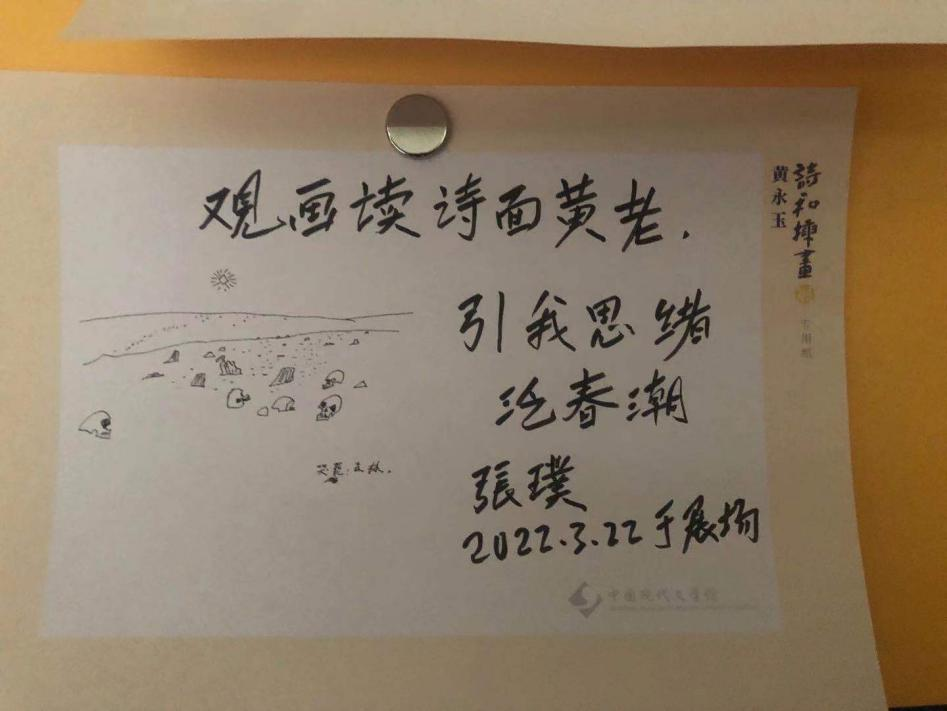 观画读诗面黄老.
引我思绪
泛春潮
張璞
2022.3.22于展场
詩和插畫
黄永玉
专用纸
中国现代文学馆